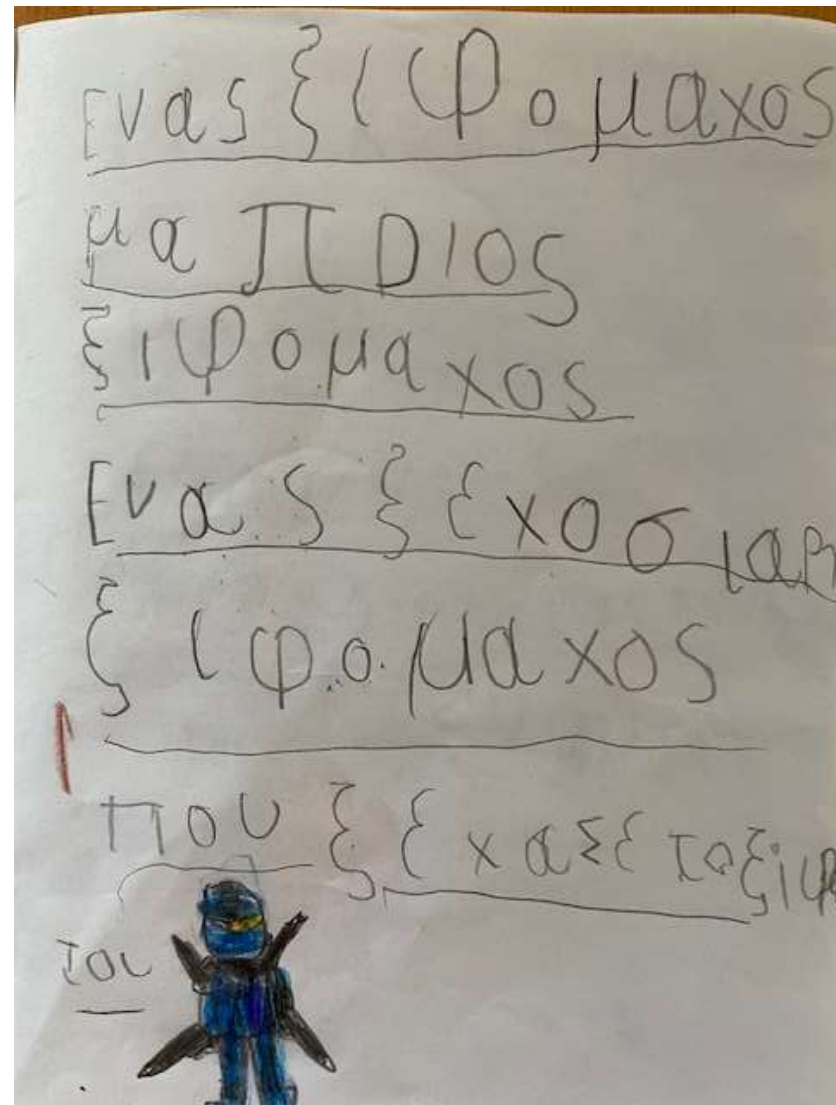 Ενας ξιφομαχος
μα ποιος
ξιφομαχος
Ενας ξεχοσιαρ
ξιφομαχος
που ξεχασε το ξιφ
του